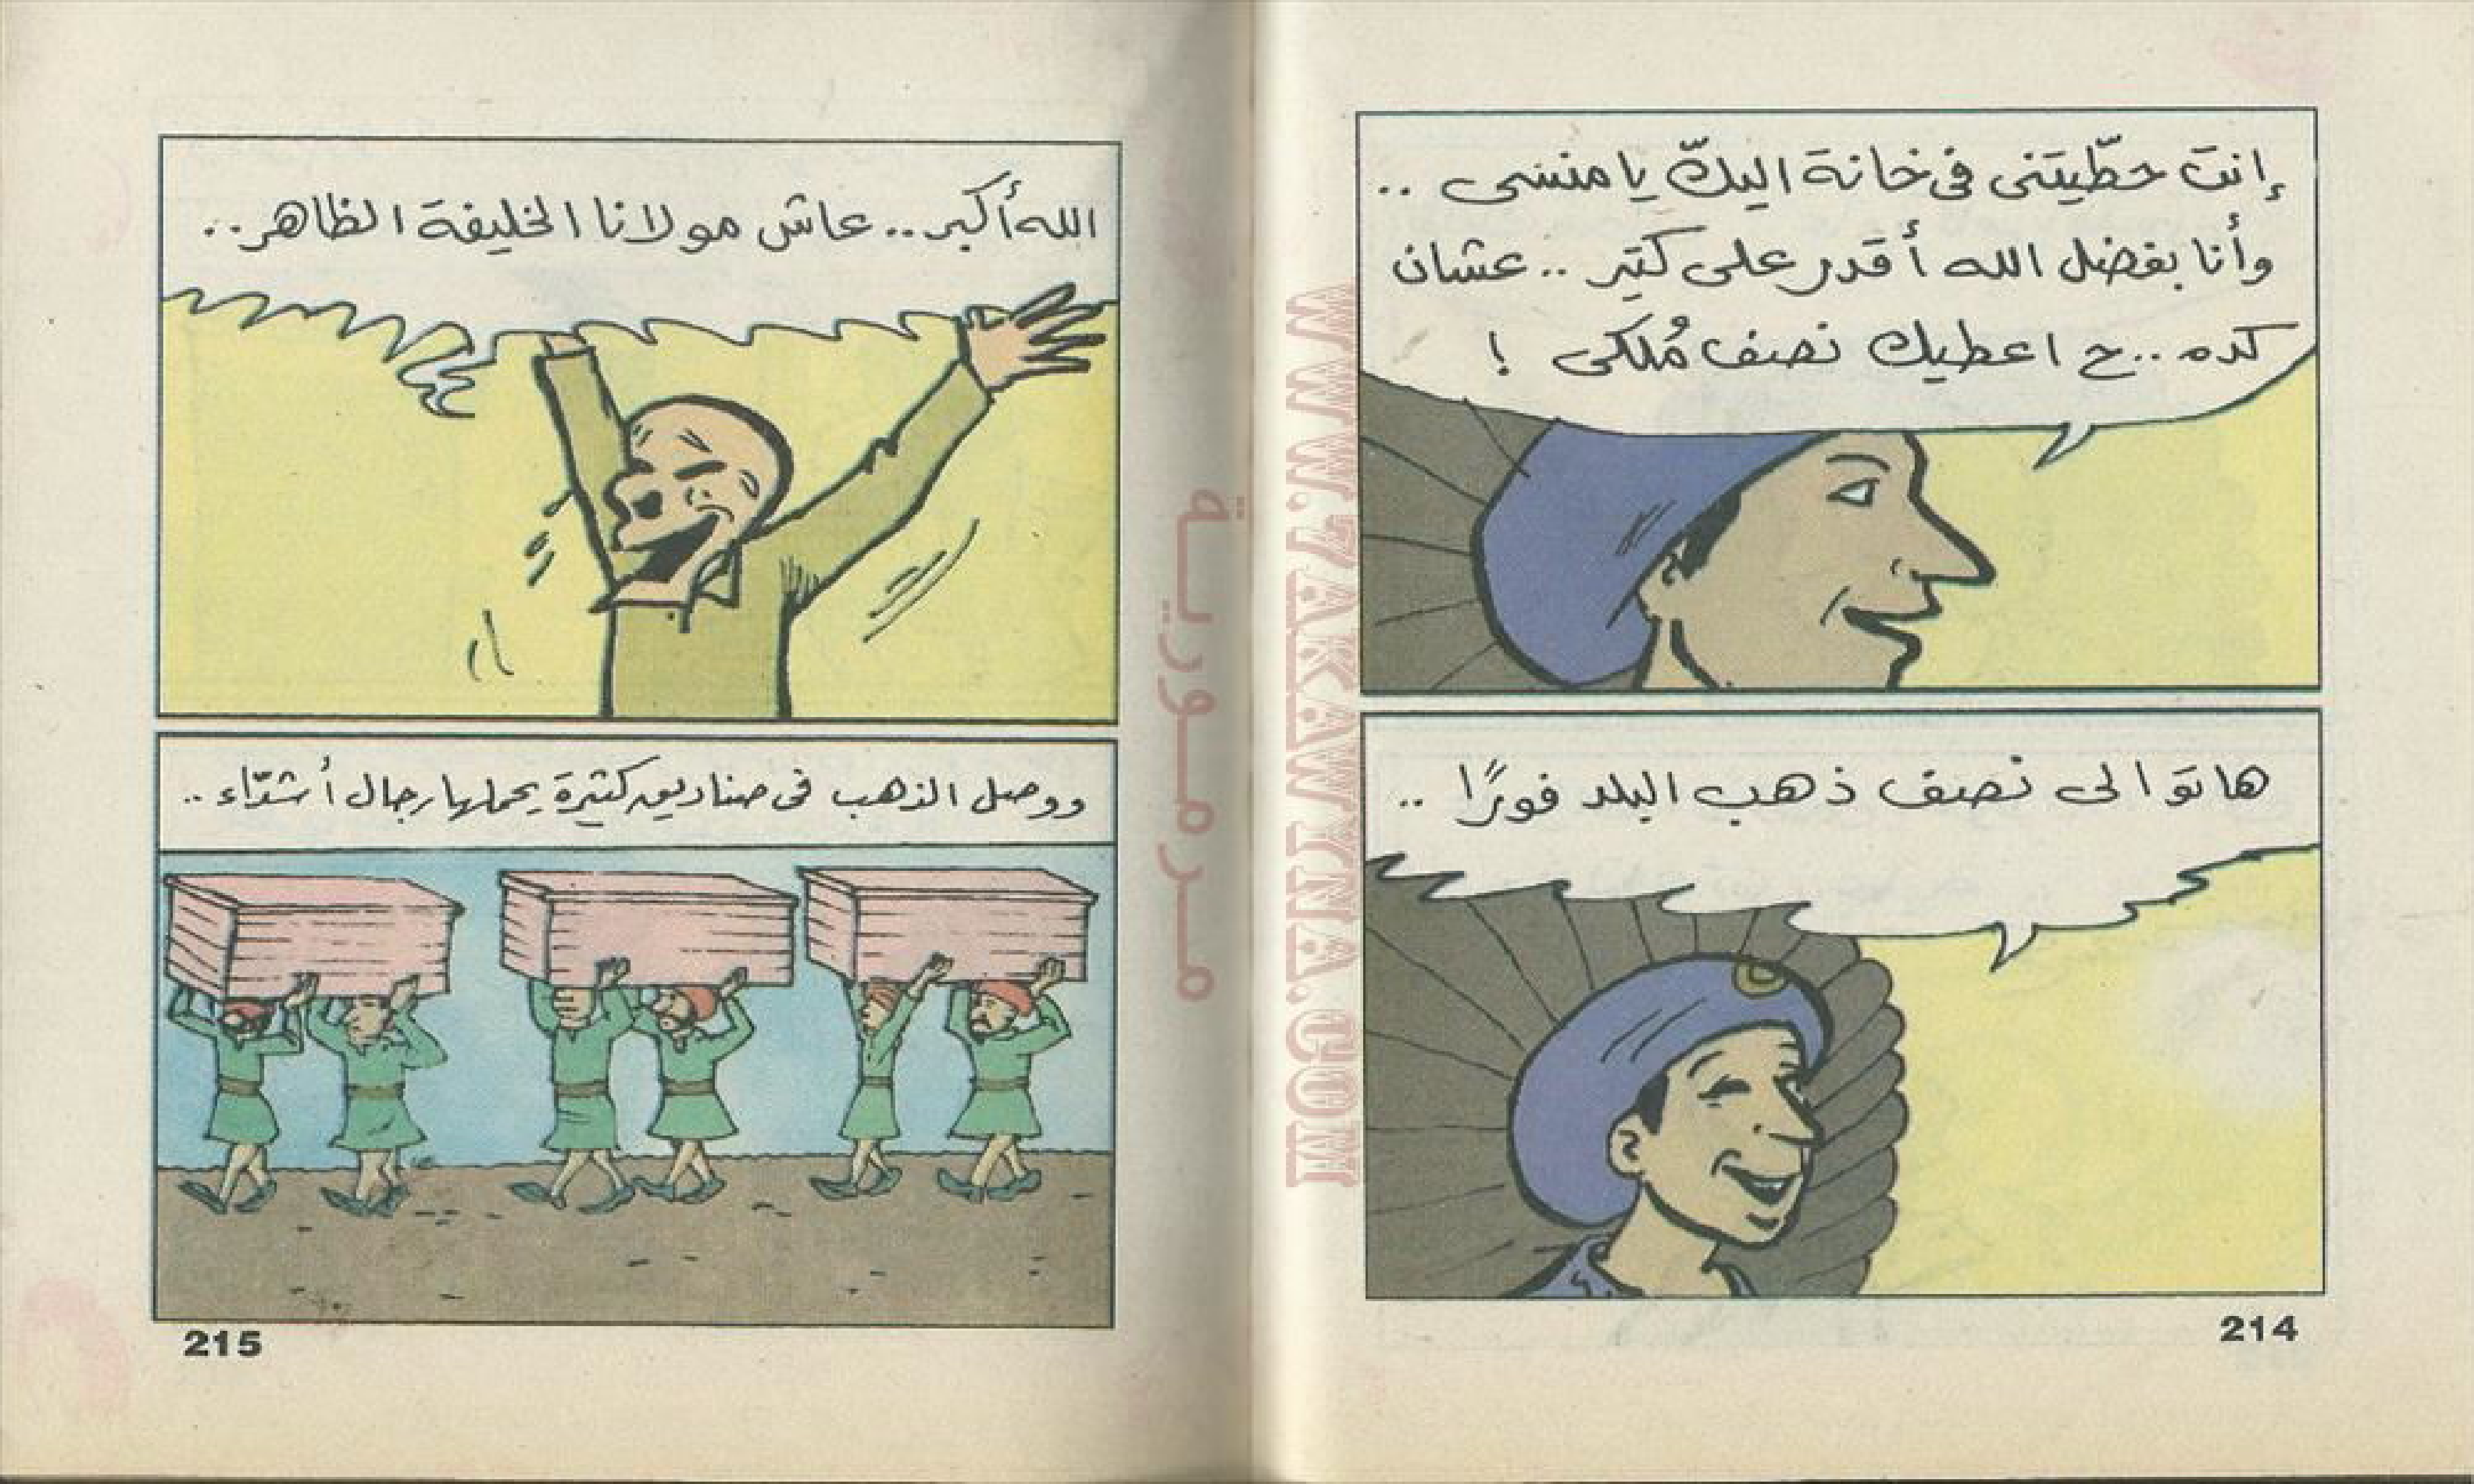 إنت حطّيتنى فى خانة اليكّ يا منسى ..
وأنا بفضل الله أقدر على كتير .. عشان
كده .. ح اعطيك نصف مُلكى !
هاتوا لى نصف ذهب البلد فورًا ..
214
الله أكبر .. عاش مولانا الخليفة الظاهر ..
ووصل الذهب فى صناديق كثيرة يحملها رجال أشدّاء ..
215
مرمورية
WWW.7AKAWYNA.COM